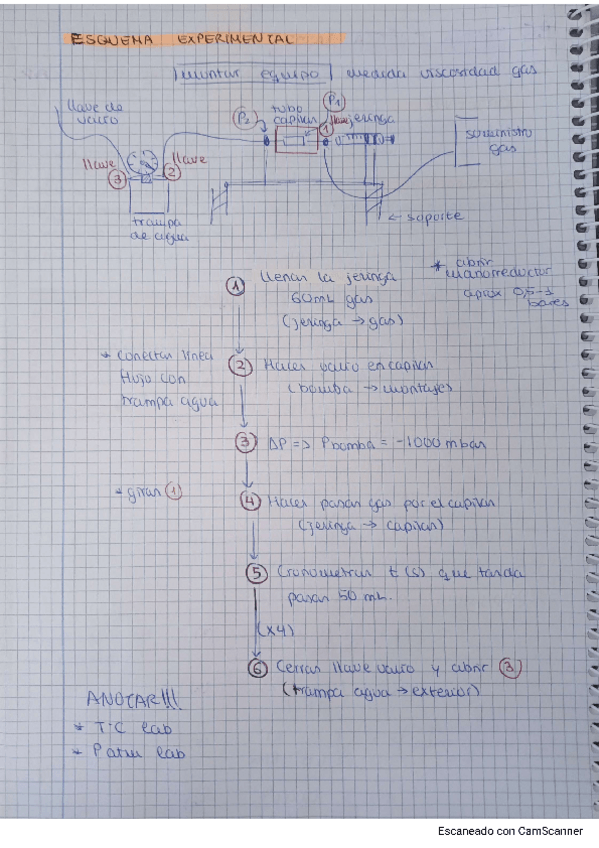 ESQUEMA EXPERIMENTAL
montar equipo medida viscosidad gas
llave de
vacío
P2
tubo
capilar
P1
1
llave
jeringa
suministro
gas
llave
3
llave
2
trampa
de agua
← soporte
1 llenar la jeringa
60mL gas
(jeringa → gas)
* abrir
manorreductor
aprox 0,5-1
bares
* conectar línea
flujo con
trampa agua
2 Hacer vacío en capilar
(bomba → montajes)
3 ΔP => Pbomba = -1000 mbar
* girar 1
4 Hacer pasar gas por el capilar
(jeringa → capilar)
5 Cronometrar t (s) que tarda
pasar 50 mL.
(x4)
6 Cerrar llave vacío y abrir 3
(trampa agua → exterior)
ANOTAR!!!
* TºC lab
* P atm lab
Escaneado con CamScanner